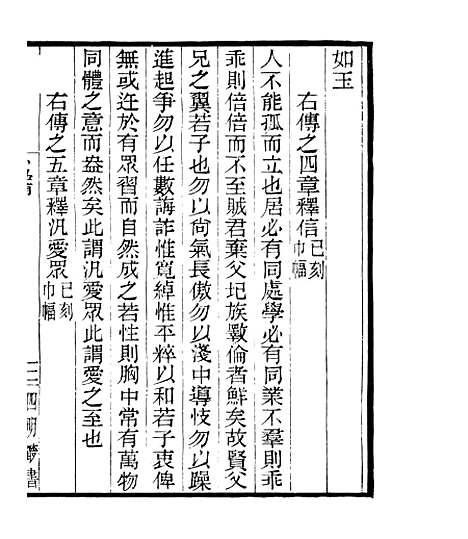 如玉
右傳之四章釋信已刻巾幅
人不能孤而立也居必有同處學必有同業不羣則乖
乖則倍倍而不至賊君棄父圮族斁倫者鮮矣故賢父
兄之翼若子也勿以尙氣長傲勿以淺中導忮勿以躁
進起爭勿以任數誨詐惟寬綽惟平粹以和若子衷俾
無或迕於有眾習而自然成之若性則胸中常有萬物
同體之意而盎然矣此謂汎愛眾此謂愛之至也
右傳之五章釋汎愛眾已刻巾幅
四明叢書